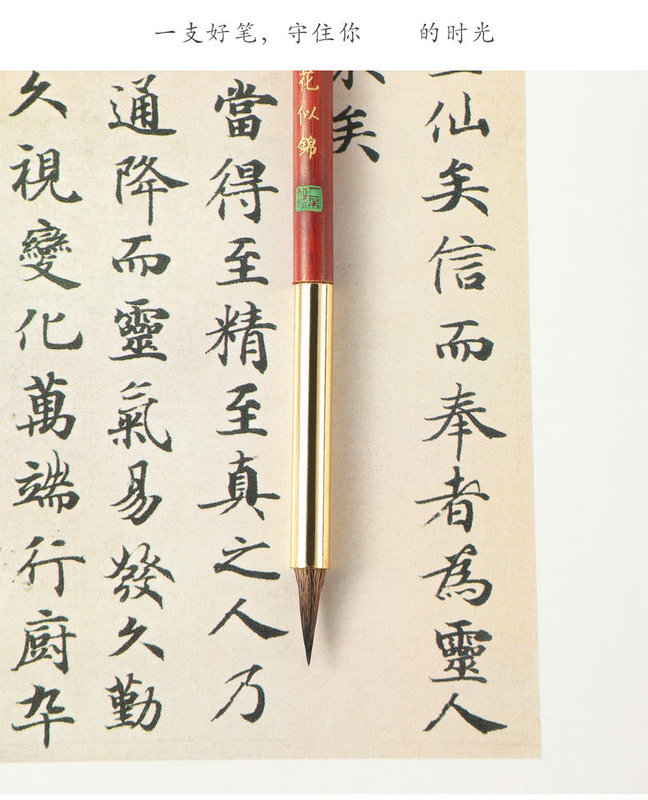 一支好笔，守住你 的时光
仙矣信而奉者為靈人
矣
花似錦
當得至精至真之人乃
通降而靈氣易發久勤
久視變化萬端行廚卒